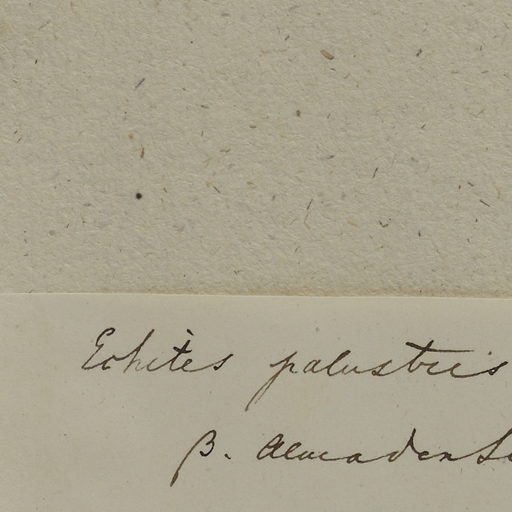 Echites palustris
β. Almadensi